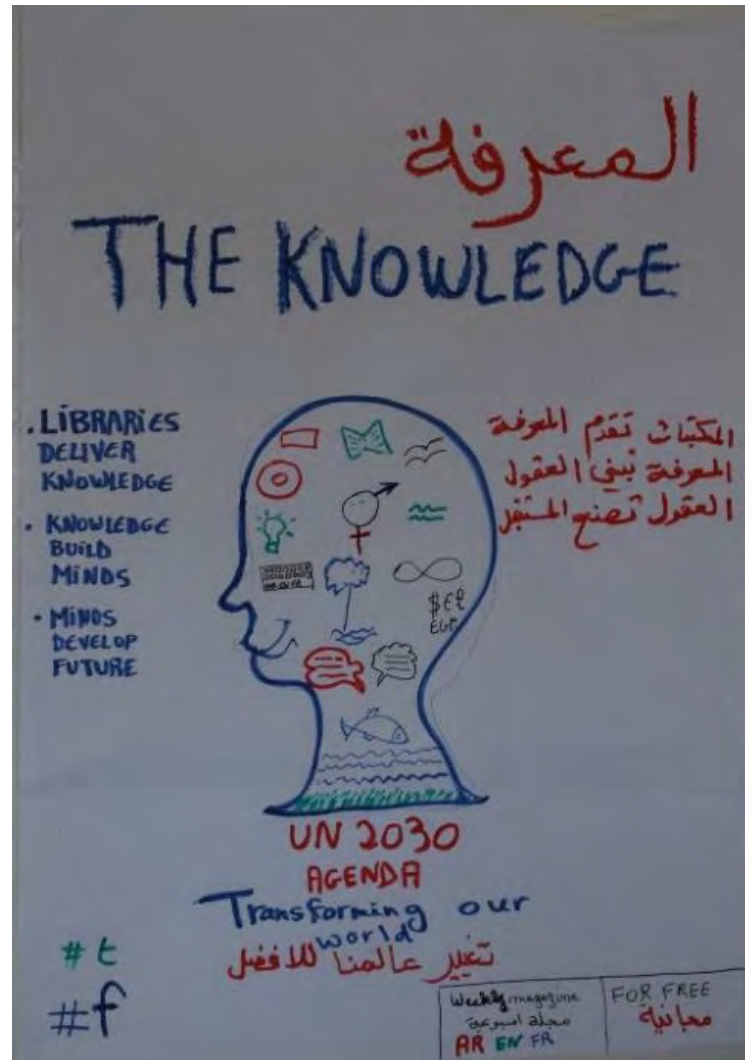 المعرفة
THE KNOWLEDGE
. LIBRARIES
DELIVER
KNOWLEDGE
• KNOWLEDGE
BUILD
MINDS
• MINDS
DEVELOP
FUTURE
المكتبات تقدم المعرفة
المعرفة تبني العقول
العقول تصنع المستقبل
$€£
EGP
UN 2030
AGENDA
Transforming our
world
تغيير عالمنا للافضل
# t
#f
Weekly magazine
مجلة اسبوعية
AR EN FR
FOR FREE
مجانية